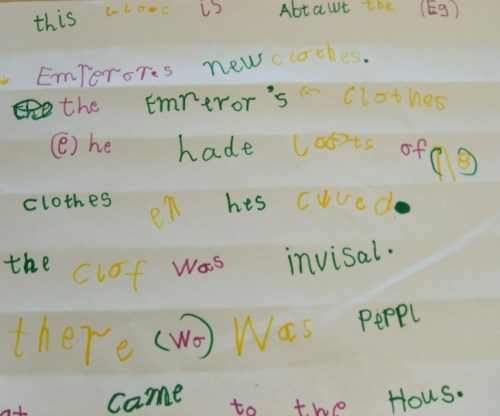 this is Abtawt the (Eg)
Emperores new clothes.
the Emperor's clothes
(e) he hade loots of
clothes en hes cuved.
the clof was invisal.
there (wo) was peppl
at came to the Hous.